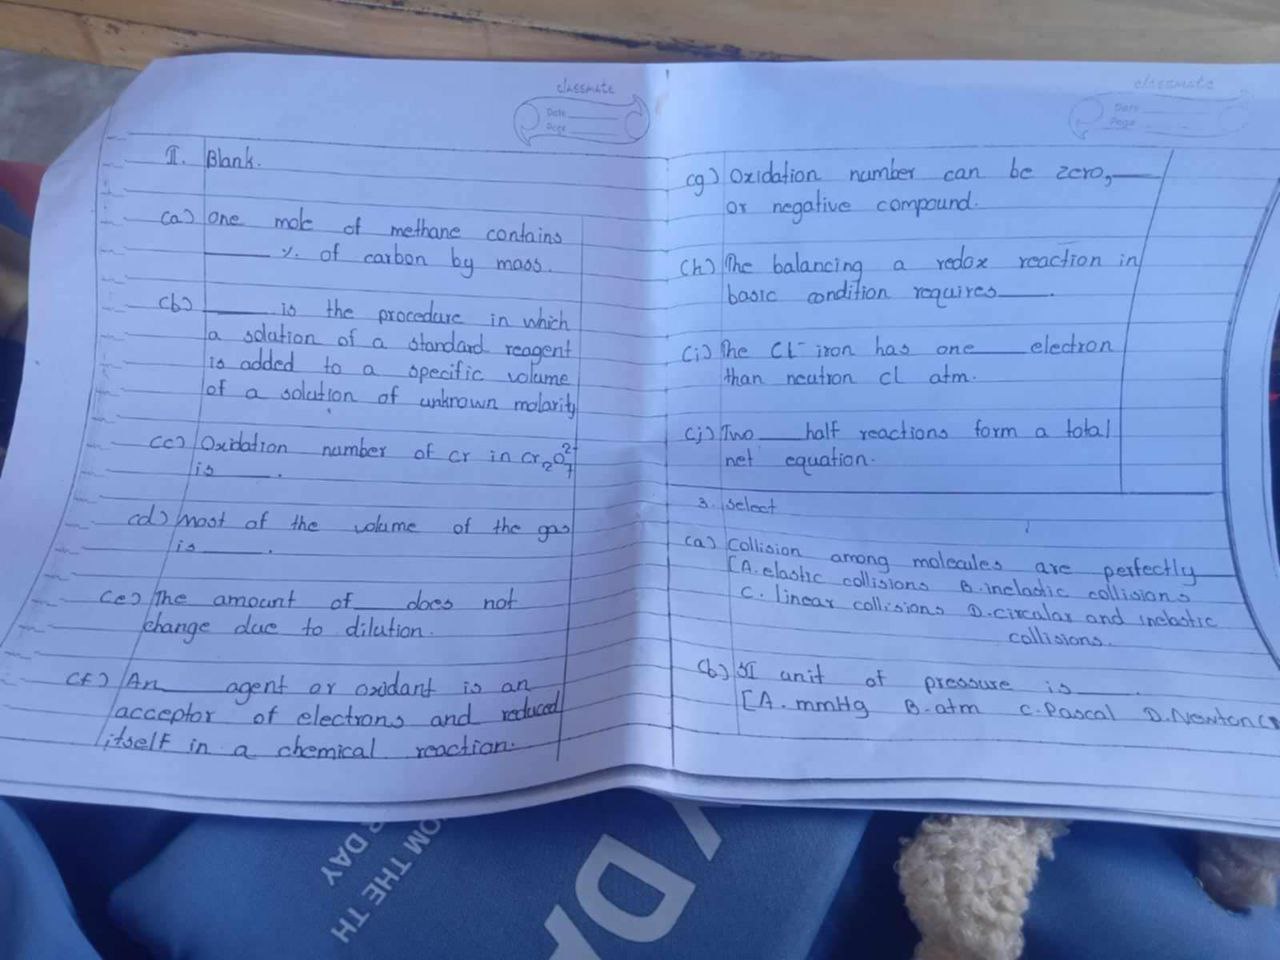 classmate
Date
Page
I. Blank.
(a) One mole of methane contains
____ % of carbon by mass.
(b) ____ is the procedure in which
a solution of a standard reagent
is added to a specific volume
of a solution of unknown molarity
(c) Oxidation number of cr in cr₂O₇²⁻
is ____.
(d) Most of the volume of the gas
is ____.
(e) The amount of ____ does not
change due to dilution.
(f) An ____ agent or oxidant is an
acceptor of electrons and reduced
itself in a chemical reaction.
classmate
Date
Page
(g) Oxidation number can be zero, ____
or negative compound.
(h) The balancing a redox reaction in
basic condition requires ____.
(i) The Cl⁻ iron has one ____ electron
than neutron cl atm.
(j) Two ____ half reactions form a total
net equation.
3. select
(a) Collision among molecules are perfectly ____
[A. elastic collisions B. inelastic collisions
C. linear collisions D. circular and inelastic
collisions.
(b) SI unit of pressure is ____.
[A. mmHg B. atm C. Pascal D. Newton
OM THE TH
DAY
Y DA